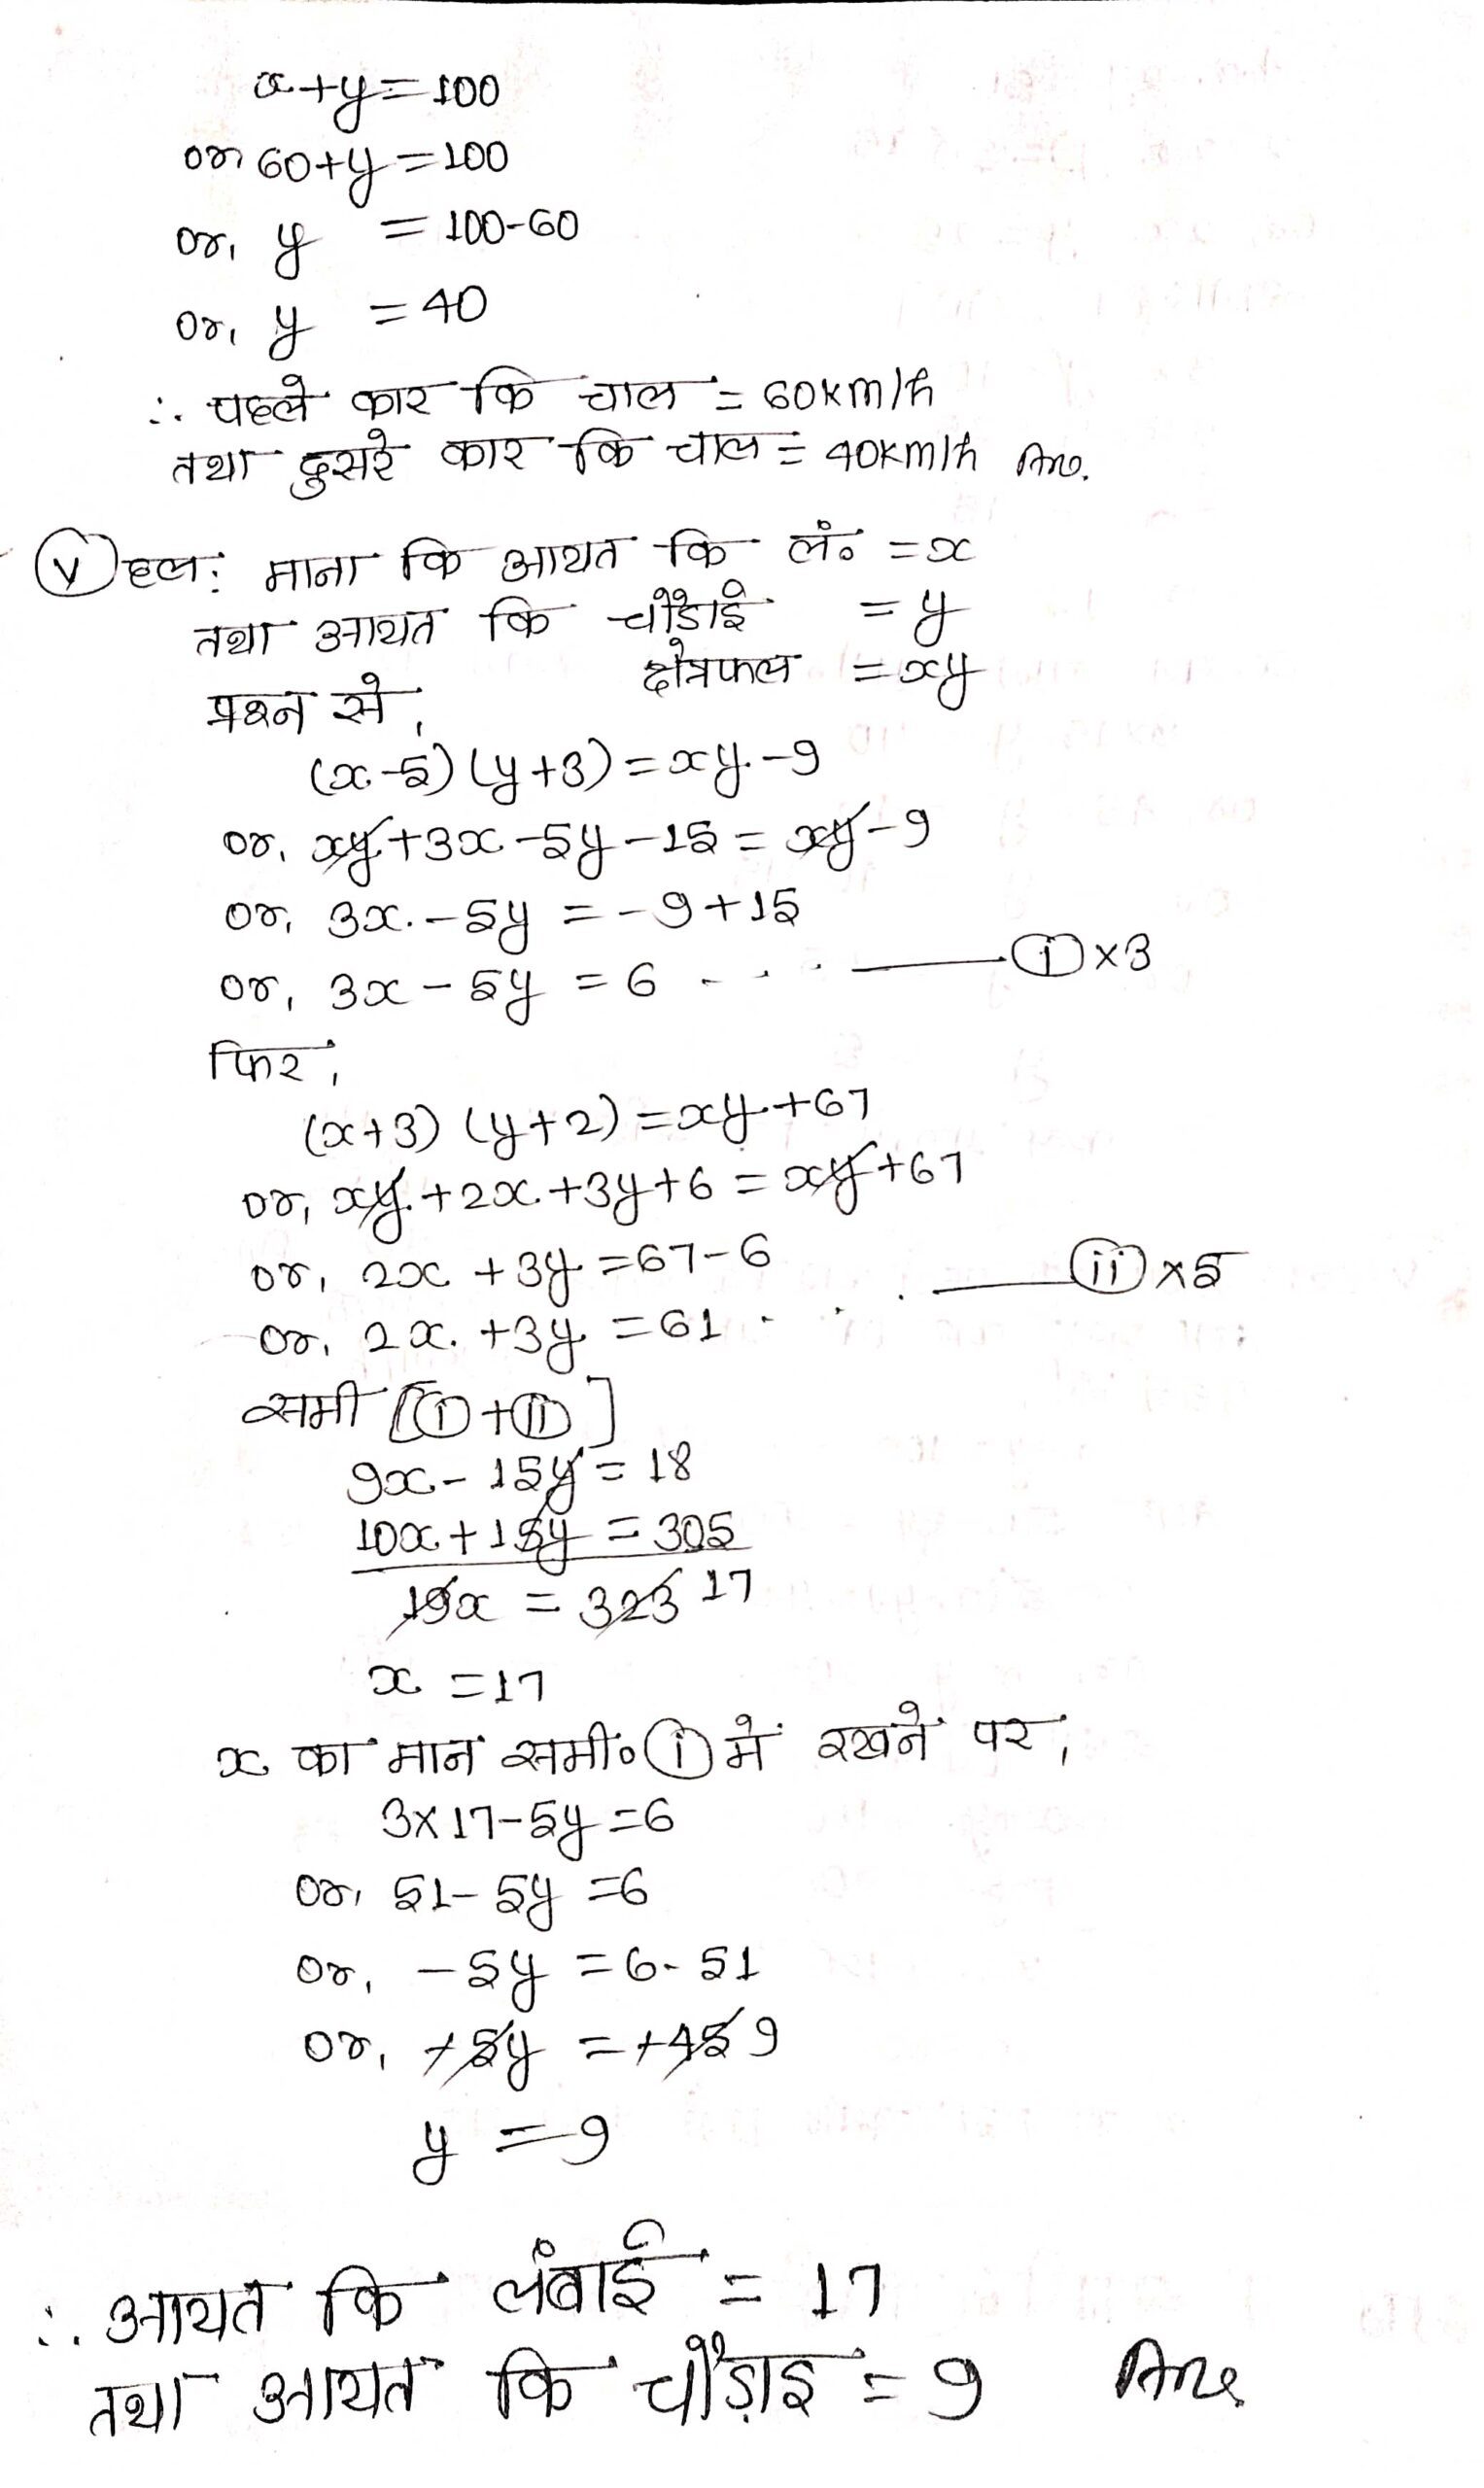 x+y=100
or 60+y=100
or, y = 100-60
or, y = 40
∴ पहले कार कि चाल = 60km/h
तथा दुसरे कार कि चाल = 40km/h Ans.
(v) हल: माना कि आयत कि लं० = x
तथा आयत कि चौड़ाई = y
क्षेत्रफल = xy
प्रश्न से,
(x-5) (y+3) = xy-9
or, xy+3x-5y-15 = xy-9
or, 3x-5y = -9+15
or, 3x-5y = 6 ... ——(i)×3
फिर,
(x+3) (y+2) = xy+67
or, xy+2x+3y+6 = xy+67
or, 2x+3y = 67-6
or, 2x+3y = 61 .... ——(ii)×5
समी [(i)+(ii)]
9x-15y = 18
10x+15y = 305
19x = 323 17
x = 17
x का मान समी० (i) में रखने पर,
3×17-5y = 6
or, 51-5y = 6
or, -5y = 6-51
or, +5y = +45 9
y = 9
∴ आयत कि लंबाई = 17
तथा आयत कि चौड़ाइ = 9 Ans